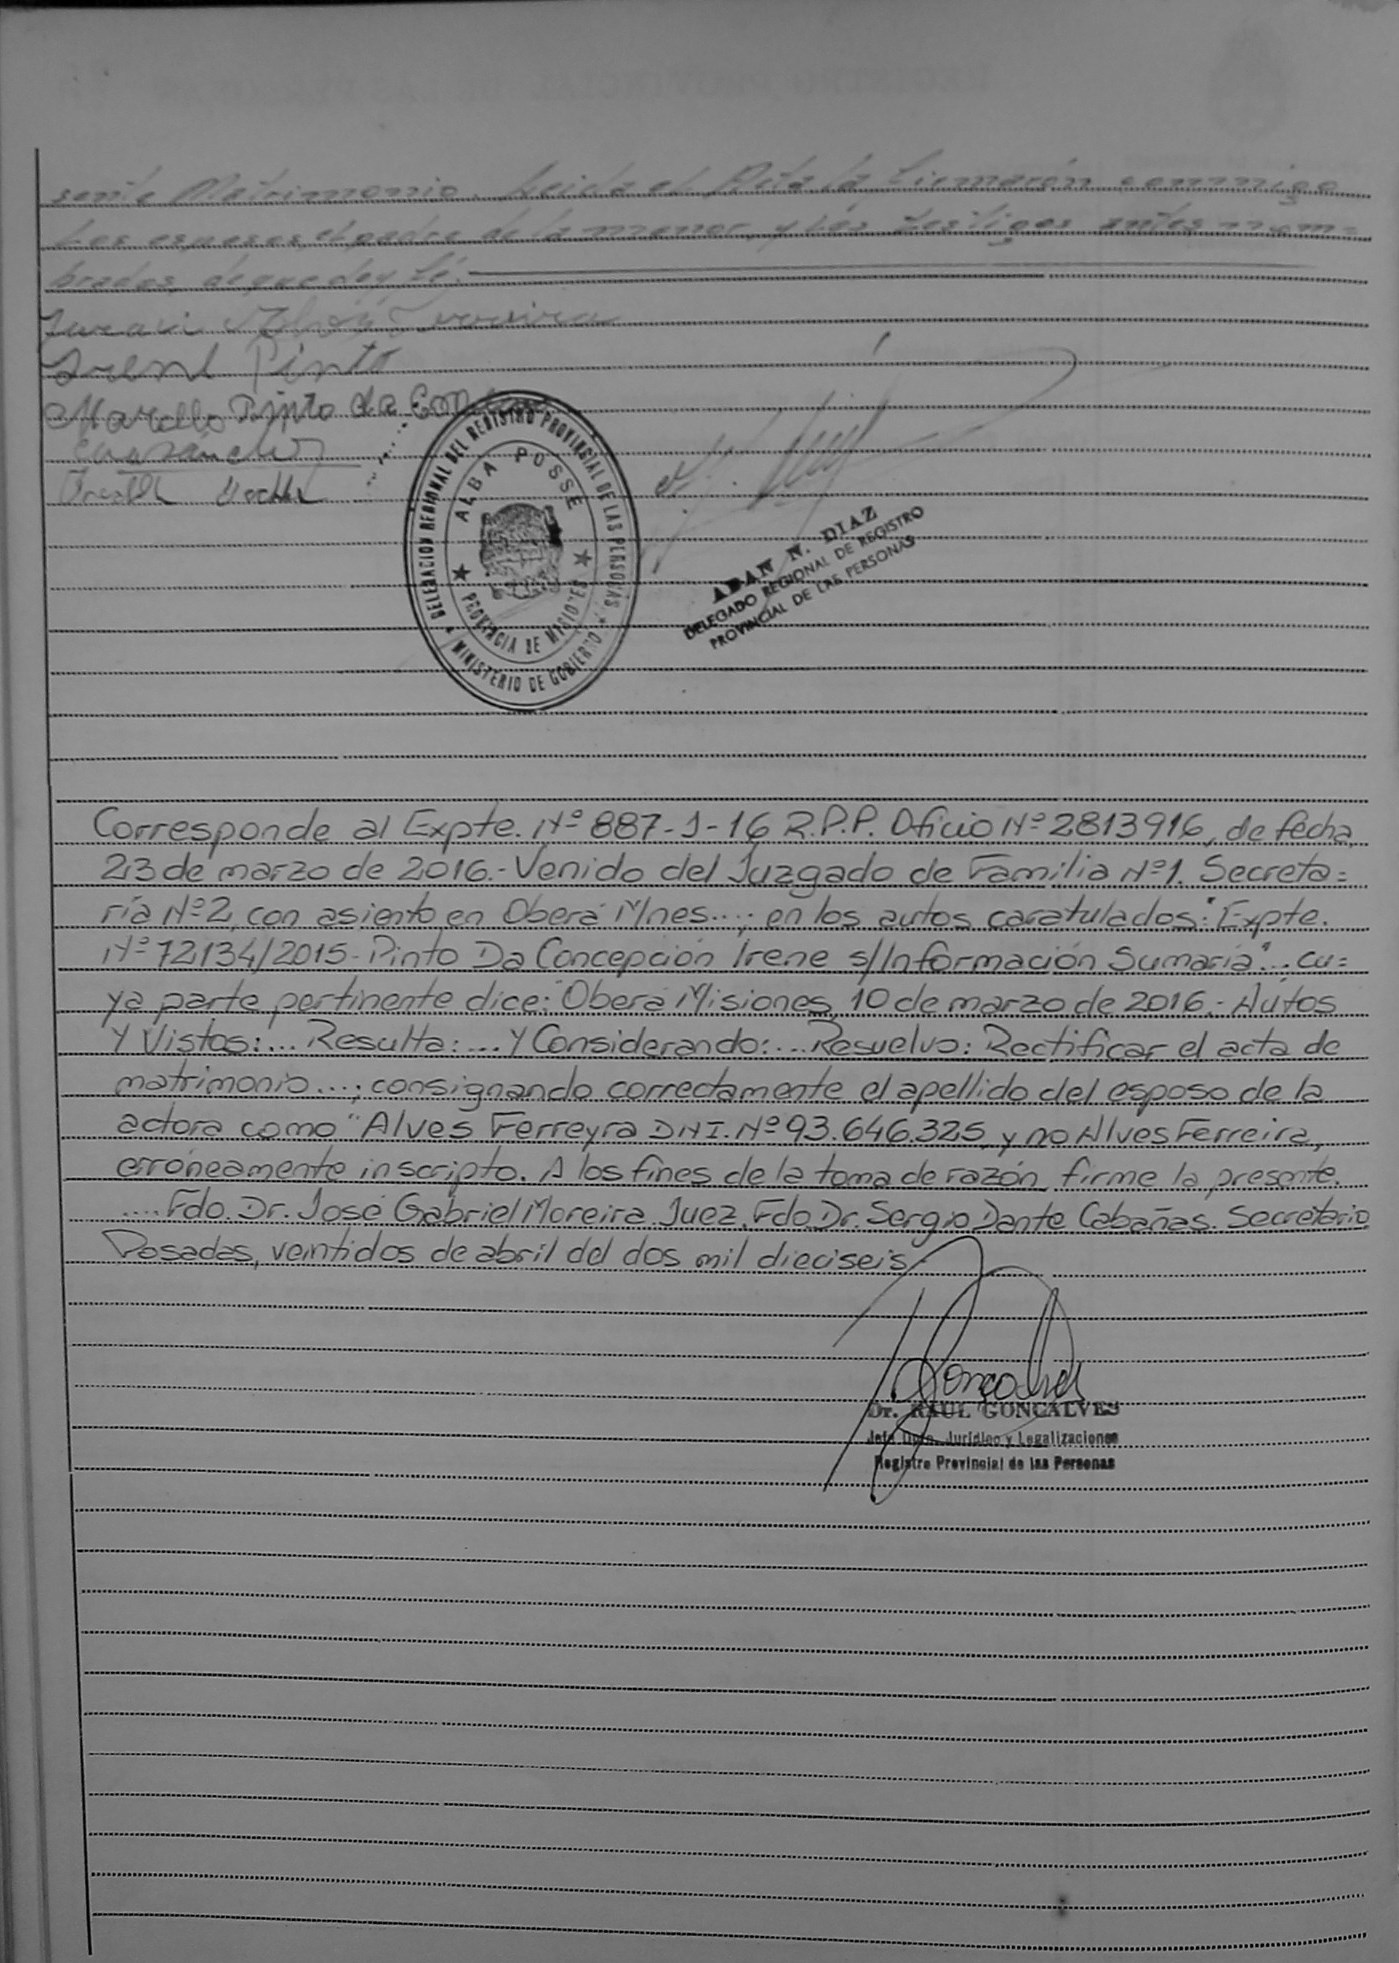 sente Matrimonio. Leida el Acta la firmaron conmigo
los esposos, el padre de la menor, y los testigos antes nom=
brados, de que doy fé.
Irene Pinto
Marcello Pinto da Con
DELEGACION REGIONAL DEL REGISTRO PROVINCIAL DE LAS PERSONAS
ALBA POSSE
PROVINCIA DE MISIONES
MINISTERIO DE GOBIERNO
ADAN N. DIAZ
DELEGADO REGIONAL DE REGISTRO
PROVINCIAL DE LAS PERSONAS
Corresponde al Expte. Nº 887-J-16 R.P.P. Oficio Nº 2813916, de fecha
23 de marzo de 2016.- Venido del Juzgado de Familia Nº1. Secreta=
ría Nº2, con asiento en Oberá Mnes...; en los autos caratulados: "Expte.
Nº 72134/2015- Pinto Da Concepción Irene s/Información Sumaria"... cu=
ya parte pertinente dice: "Oberá Misiones, 10 de marzo de 2016.- Autos
Y Vistos:... Resulta:... Y Considerando:... Resuelvo: Rectificar el acta de
matrimonio...; consignando correctamente el apellido del esposo de la
actora como "Alves Ferreyra D.N.I. Nº 93.646.325, y no Alves Ferreira,
erróneamente inscripto. A los fines de la toma de razón, firme la presente.
.... Fdo. Dr. José Gabriel Moreira. Juez. Fdo Dr. Sergio Dante Cabañas. Secretario
Posadas, veintidos de abril del dos mil dieciseis.
Dr. RAUL GONCALVES
Jefe Dpto. Jurídico y Legalizaciones
Registro Provincial de las Personas